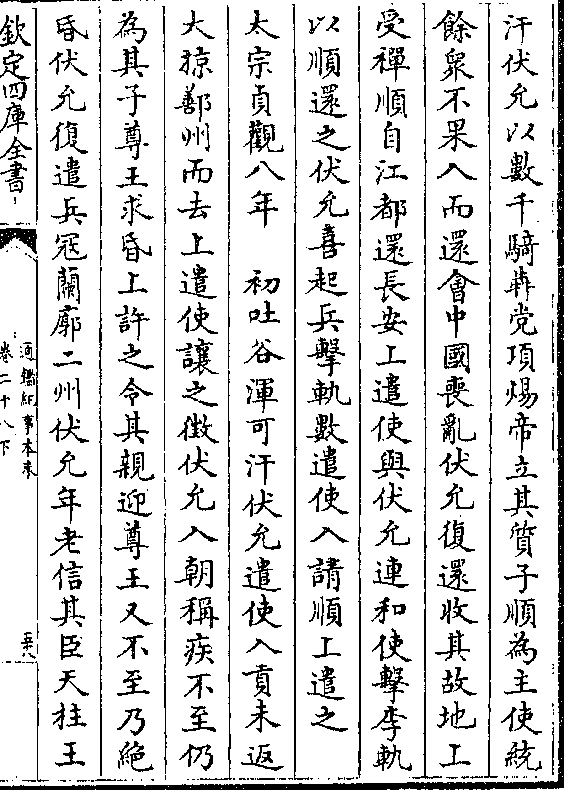 汗伏允以數千騎犇党項煬帝立其質子順為主使統
餘衆不果入而還會中國喪亂伏允復還收其故地上
受禪順自江都還長安上遣使與伏允連和使擊李軌
以順還之伏允喜起兵擊軌數遣使入請順上遣之
太宗貞觀八年　初吐谷渾可汗伏允遣使入貢未返
大掠鄯州而去上遣使讓之徴伏允入朝稱疾不至仍
為其子尊王求昏上許之令其親迎尊王又不至乃絶
昏伏允復遣兵冦蘭廓二州伏允年老信其臣天柱王
欽定四庫全書
通鑑紀事本末
卷二十八下